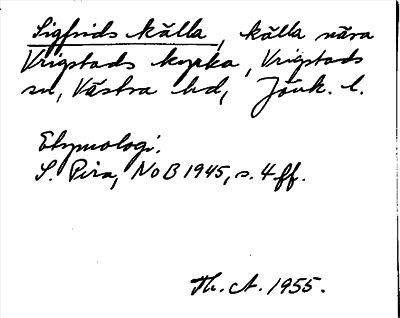 Sigfrids källa, källa nära
Vrigstads kyrka, Vrigstads
sn, Västra hd, Jönk. l.
Etymologi.
S. Pira, NoB 1945, s. 4 ff.
Th. A. 1955.